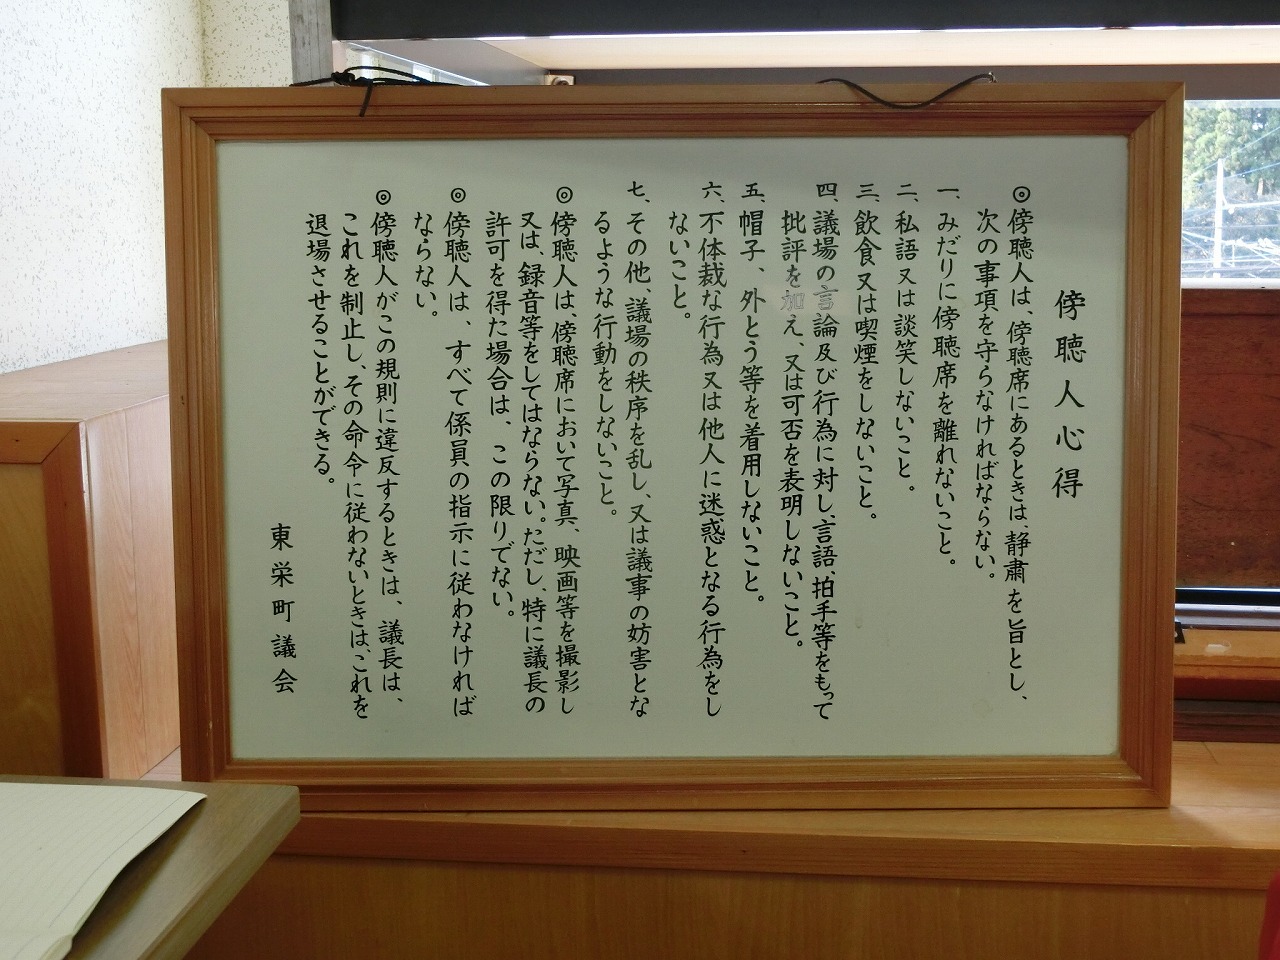 傍聴人心得
◎傍聴人は、傍聴席にあるときは、静粛を旨とし、
次の事項を守らなければならない。
一、みだりに傍聴席を離れないこと。
二、私語又は談笑しないこと。
三、飲食又は喫煙をしないこと。
四、議場の言論及び行為に対し、言語、拍手等をもって
批評を加え、又は可否を表明しないこと。
五、帽子、外とう等を着用しないこと。
六、不体裁な行為又は他人に迷惑となる行為をし
ないこと。
七、その他、議場の秩序を乱し、又は議事の妨害とな
るような行動をしないこと。
◎傍聴人は、傍聴席において写真、映画等を撮影し
又は、録音等をしてはならない。ただし、特に議長の
許可を得た場合は、この限りでない。
◎傍聴人は、すべて係員の指示に従わなければ
ならない。
◎傍聴人がこの規則に違反するときは、議長は、
これを制止し、その命令に従わないときは、これを
退場させることができる。
東栄町議会